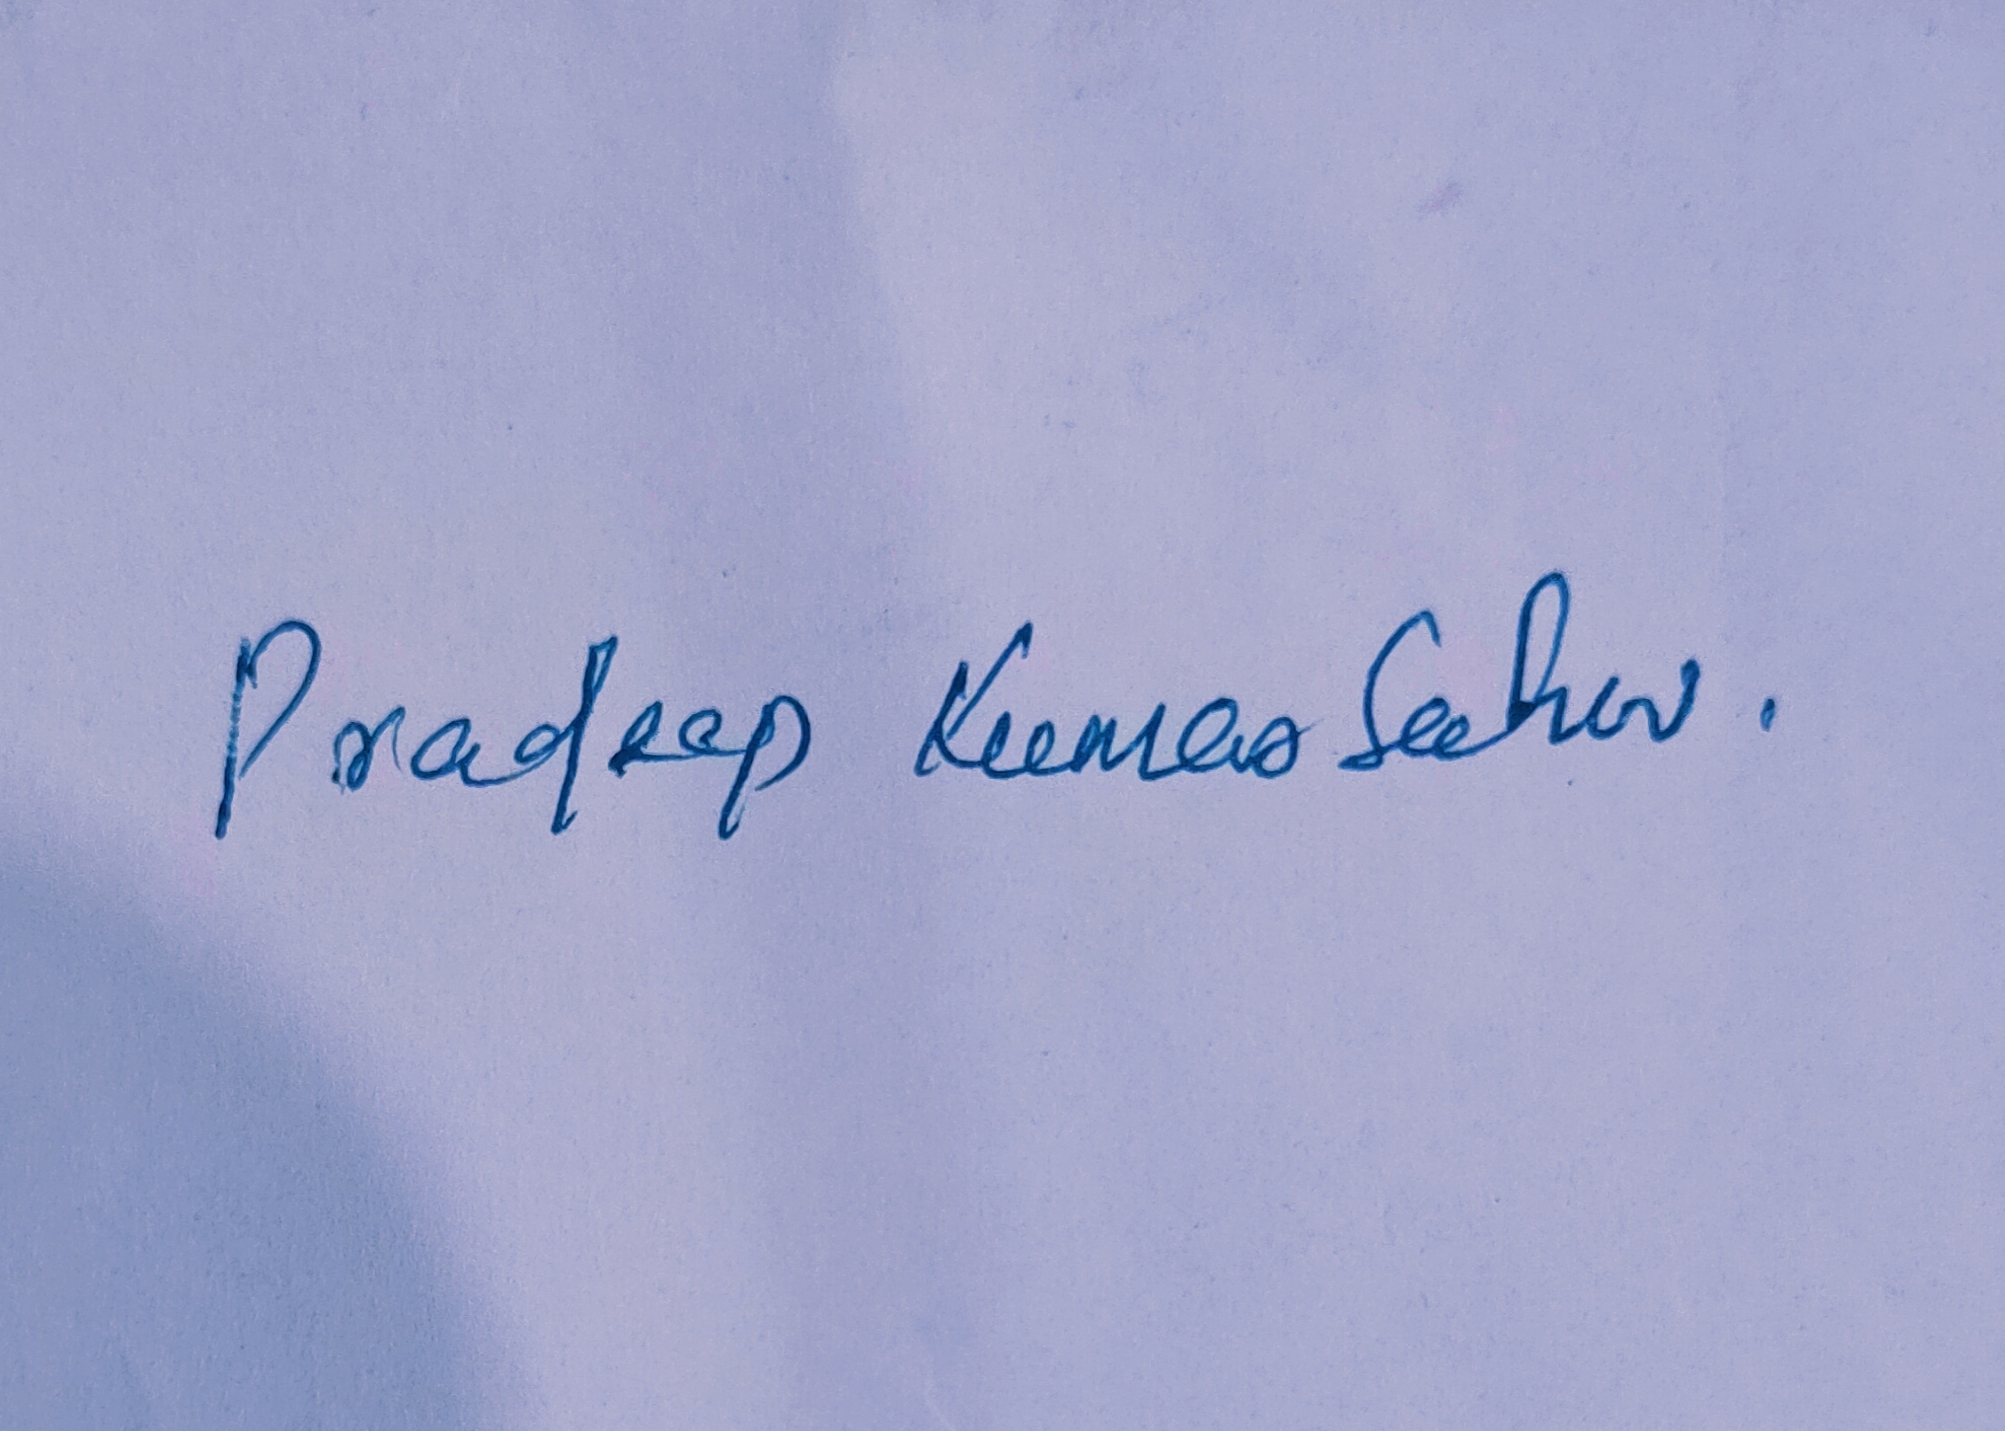 Pradeep Kumar Sahu.